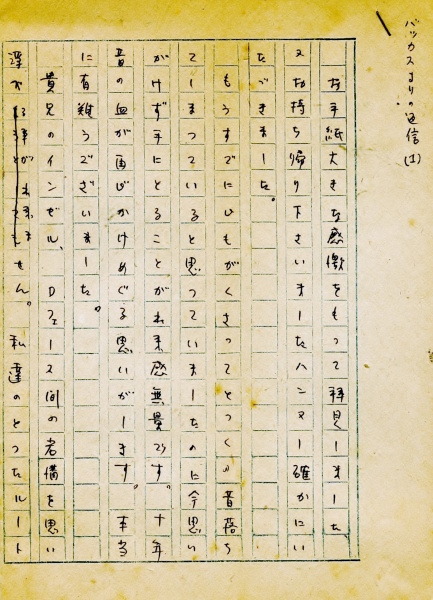 バッカスよりの通信(1)
お手紙大きな感激をもって拝見しました
又お持ち帰り下さいましたハンマー確かにい
たゞきました。
もうすでにひもがくさってとっくの昔落ち
てしまっていると思っていましたのに今思い
がけず手にとることが出来感無量です。十年
昔の血が再びかけめぐる思いがします。本当
に有難うございました。
貴兄のインゼル、Dフェース間の岩溝を思い
浮かべることが出来ません。私達のとったルート